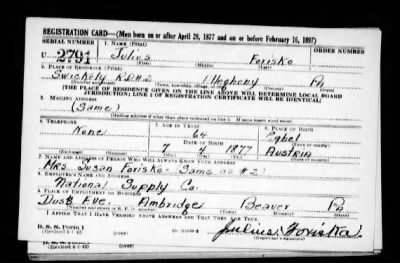 REGISTRATION CARD—(Men born on or after April 28, 1877 and on or before February 16, 1897)
SERIAL NUMBER 1. NAME (Print) ORDER NUMBER
U 2791 Julius Foriska
2. PLACE OF RESIDENCE (Print)
Swickely R.D.#2 Allegheny Pa
(Number and street) (Town, township, village, or city) (County) (State)
[THE PLACE OF RESIDENCE GIVEN ON THE LINE ABOVE WILL DETERMINE LOCAL BOARD
JURISDICTION; LINE 2 OF REGISTRATION CERTIFICATE WILL BE IDENTICAL]
3. MAILING ADDRESS
(Same)
[Mailing address if other than place indicated on line 2. If same insert word same]
4. TELEPHONE 5. AGE IN YEARS 6. PLACE OF BIRTH
None 64 Egbel
DATE OF BIRTH (Town or county)
7 4 1877 Austria
(Mo.) (Day) (Yr.) (State or country)
7. NAME AND ADDRESS OF PERSON WHO WILL ALWAYS KNOW YOUR ADDRESS
Mrs. Susan Foriska - Same as #2
8. EMPLOYER'S NAME AND ADDRESS
National Supply Co.
9. PLACE OF EMPLOYMENT OR BUSINESS
Duss Ave. Ambridge Beaver Pa
(Number and street or R. F. D. number) (Town) (County) (State)
I AFFIRM THAT I HAVE VERIFIED ABOVE ANSWERS AND THAT THEY ARE TRUE.
D. S. S. Form 1
(Revised 4-1-42) Julius Foriska